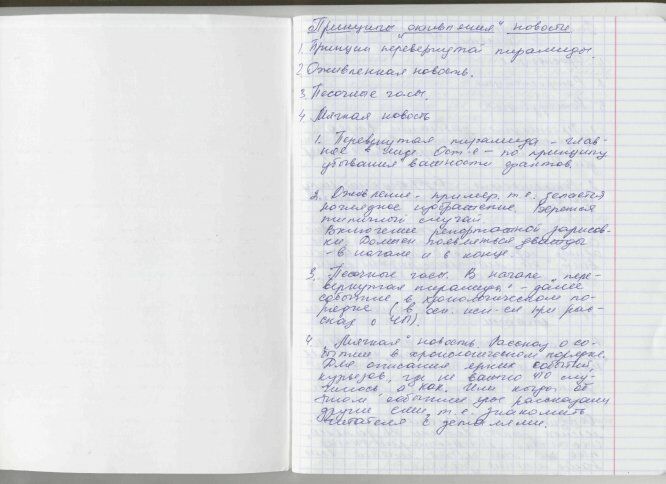 Принципы "оживления" новости
1. Принцип перевернутой пирамиды.
2. Оживленная новость.
3. Песочные часы.
4. Мягкая новость
1. Перевернутая пирамида - глав-
ное в лиде. Ост-е - по принципу
убывания важности фактов.
2. Оживление - пример. т.е. делается
наглядное изображение. Берется
типичный случай
Включение репортажной зарисов-
ки. Должен появляться дважды
- в начале и в конце.
3. Песочные часы. В начале "пере-
вернутая пирамида" - далее
событие в хронологическом по-
рядке (в осн. исп-ся при рас-
сказе о ЧП).
4. "Мягкая" новость. Рассказ о со-
бытии в хронологическом порядке.
Для описания ярких событий,
курьезов, где не важно что слу-
чилось а как. Или когда об
этом событии уже рассказали
другие СМИ, т.е. знакомить
читателя с деталями.